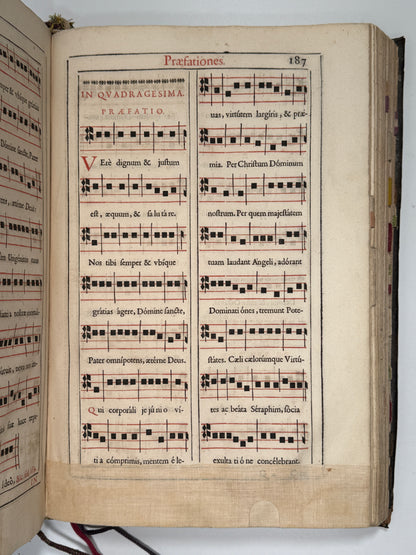 Præfationes.
187
IN QVADRAGESIMA.
PRÆFATIO.
VErè dignum & justum
est, æquum, & salutáre.
Nos tibi semper & vbíque
grátias ágere, Dómine sancte,
Pater omnípotens, ætérne Deus.
Qui corporáli jejúnio ví-
tia cómprimis, mentem éle-
uas, virtútem largíris, & præ-
mia. Per Christum Dóminum
nostrum. Per quem majestátem
tuam laudant Angeli, adórant
Dominatiónes, tremunt Pote-
státes. Cæli cælorúmque Virtú-
tes ac beáta Séraphim, sócia
exultatióne concélebrant.